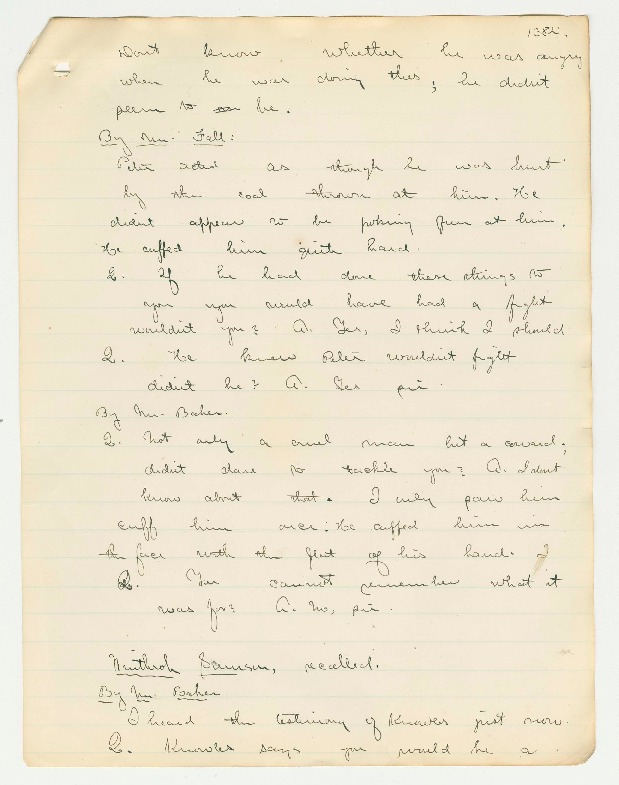 138½.
Dont know whether he was angry
when he was doing this; he didnt
seem to be.
By Mr. Fall:
Peter acted as though he was hurt
by the coal thrown at him. He
didnt appear to be poking fun at him.
He cuffed him quite hard.
Q. If he had done these things to
you you would have had a fight
wouldnt you? A. Yes, I think I should
Q. He knew Peter wouldnt fight
didnt he? A. Yes sir.
By Mr. Baker.
Q. Not only a cruel man but a coward;
didnt dare to tackle you? A. I dont
know about that. I only saw him
cuff him once: He cuffed him in
the face with the flat of his hand. I
Q. You cannot remember what it
was for? A. No, sir.
Winthrop Samson, recalled.
By Mr. Baker
I heard the testimony of Knowles just now.
Q. Knowles says you would be a